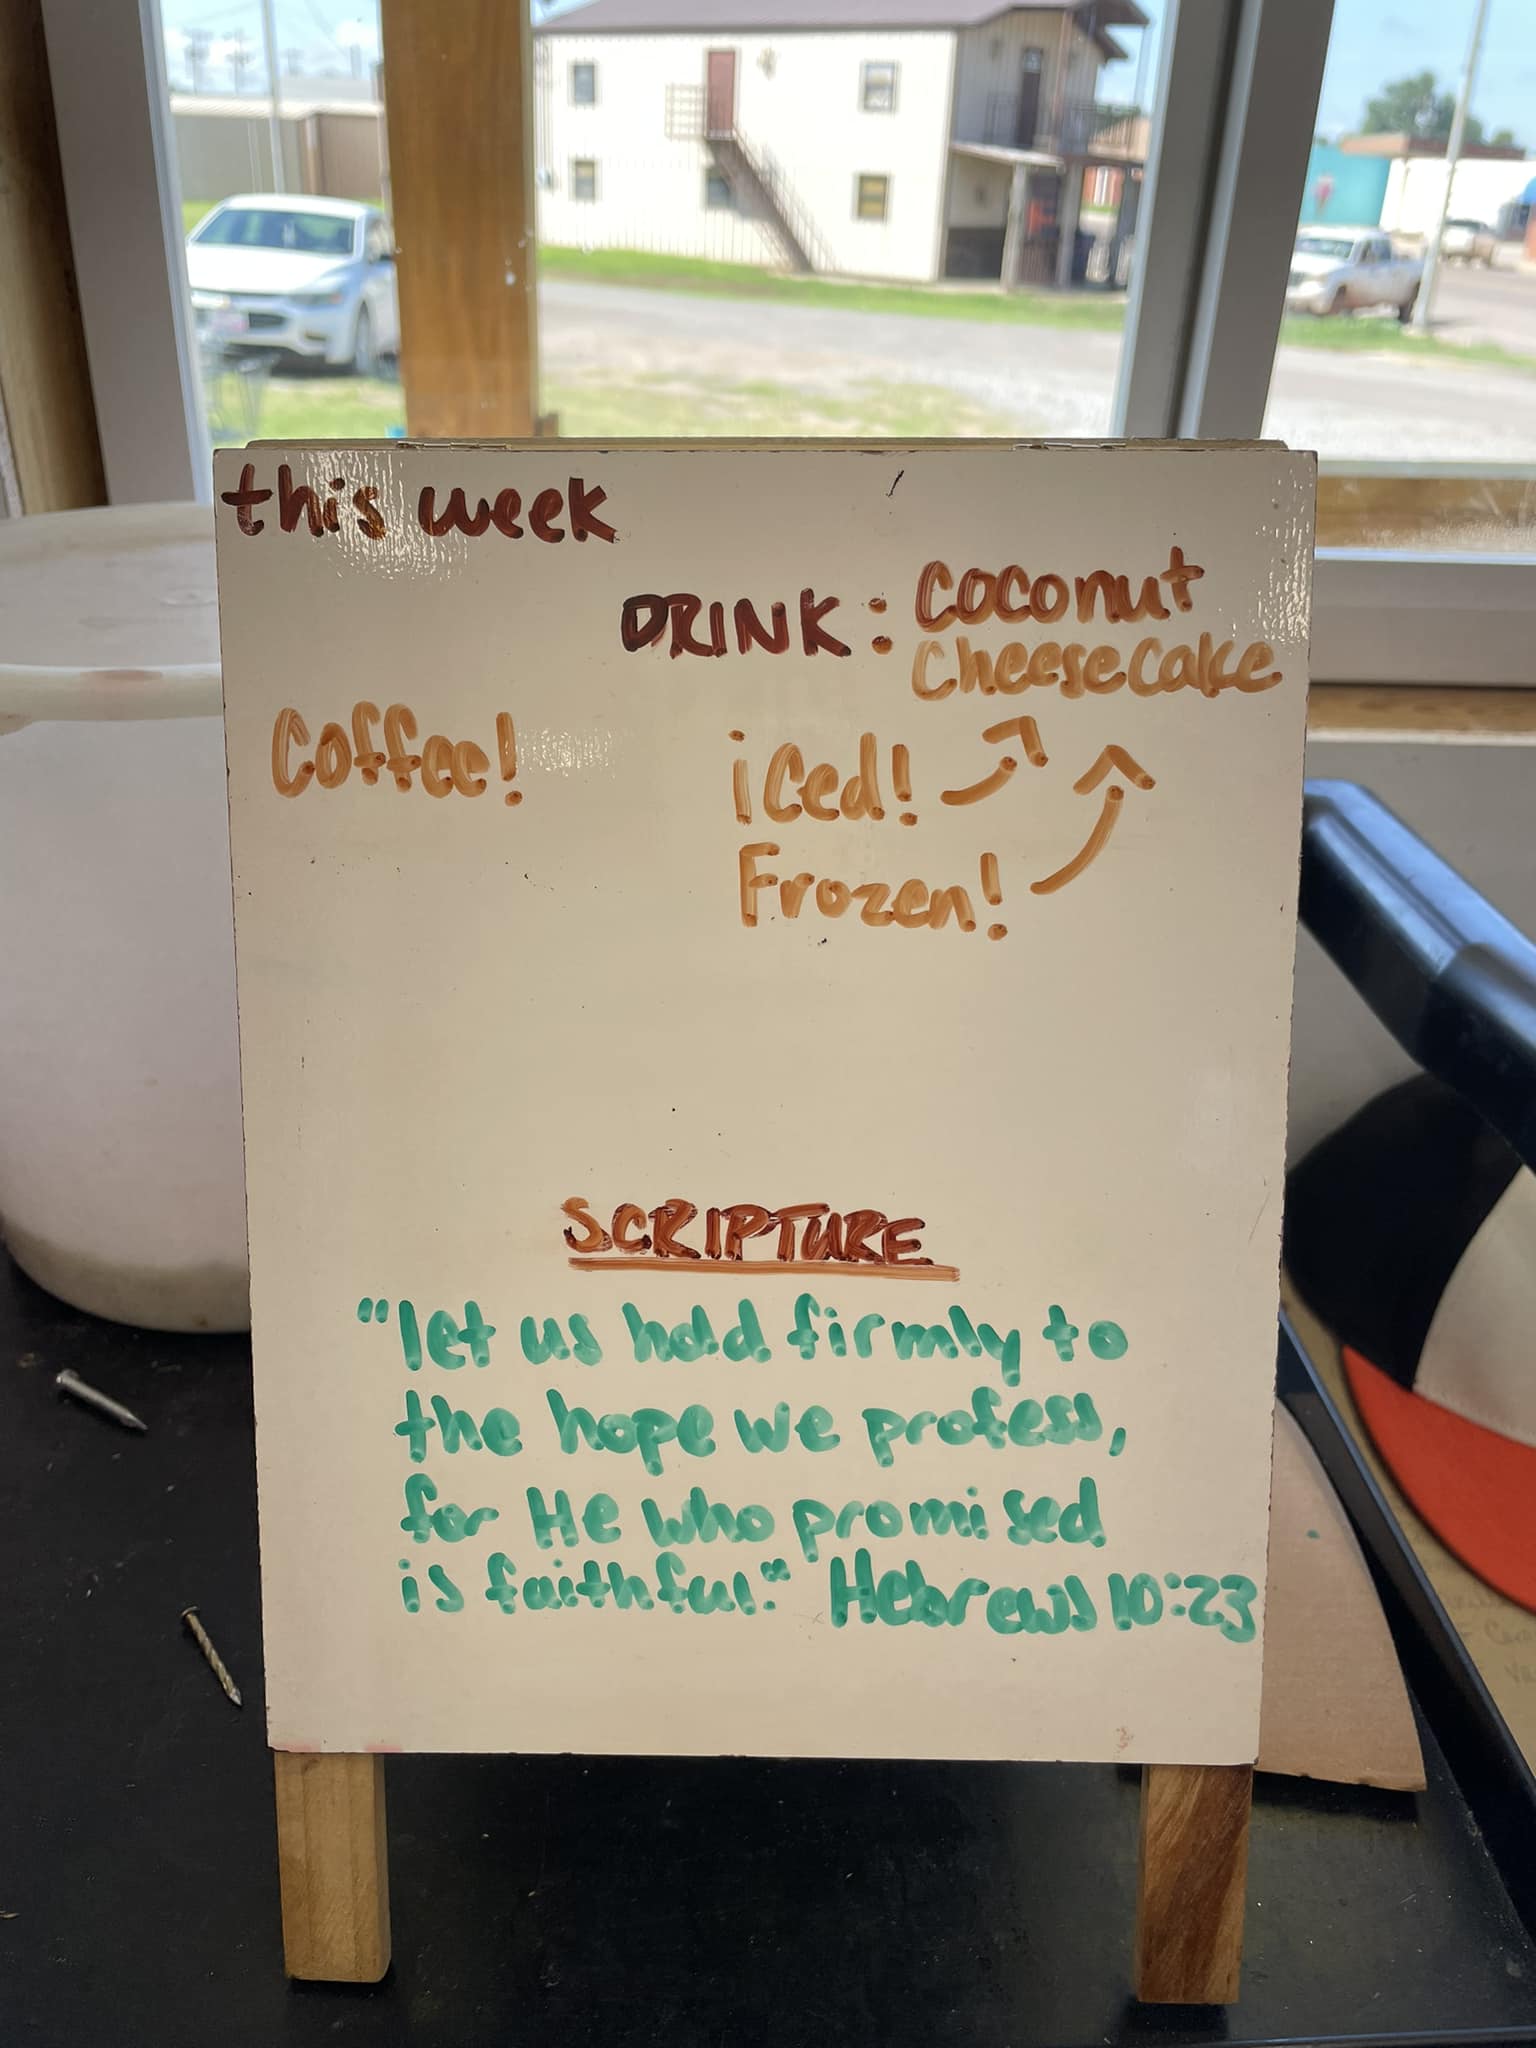 this week
DRINK: Coconut
Cheesecake
Coffee!
iced!
Frozen!
SCRIPTURE
"let us hold firmly to
the hope we profess,
for He who promised
is faithful." Hebrews 10:23